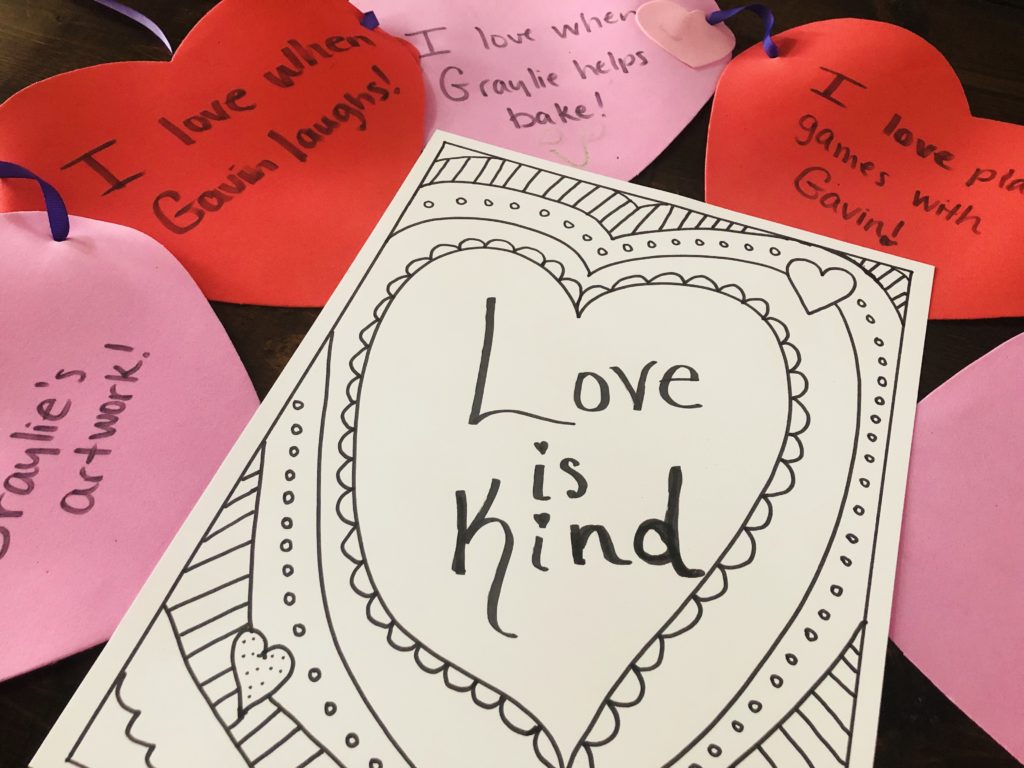 I love when
Gavin laughs!
I love when
Graylie helps
bake!
I love pla
games with
Gavin!
Graylie's
artwork!
Love
is
Kind